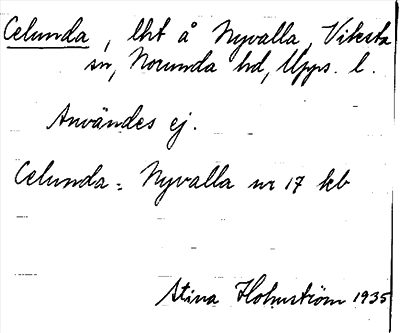 Celunda, lht å Nyvalla, Viksta
sn, Norunda hd, Upps. l.
Användes ej.
Celunda = Nyvalla nr 17 kb
Stina Holmström 1935